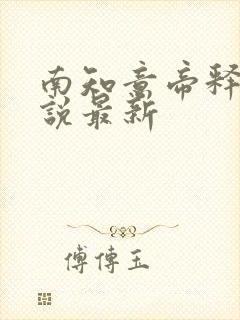 南知意帝释小
说最新
傅傅玉